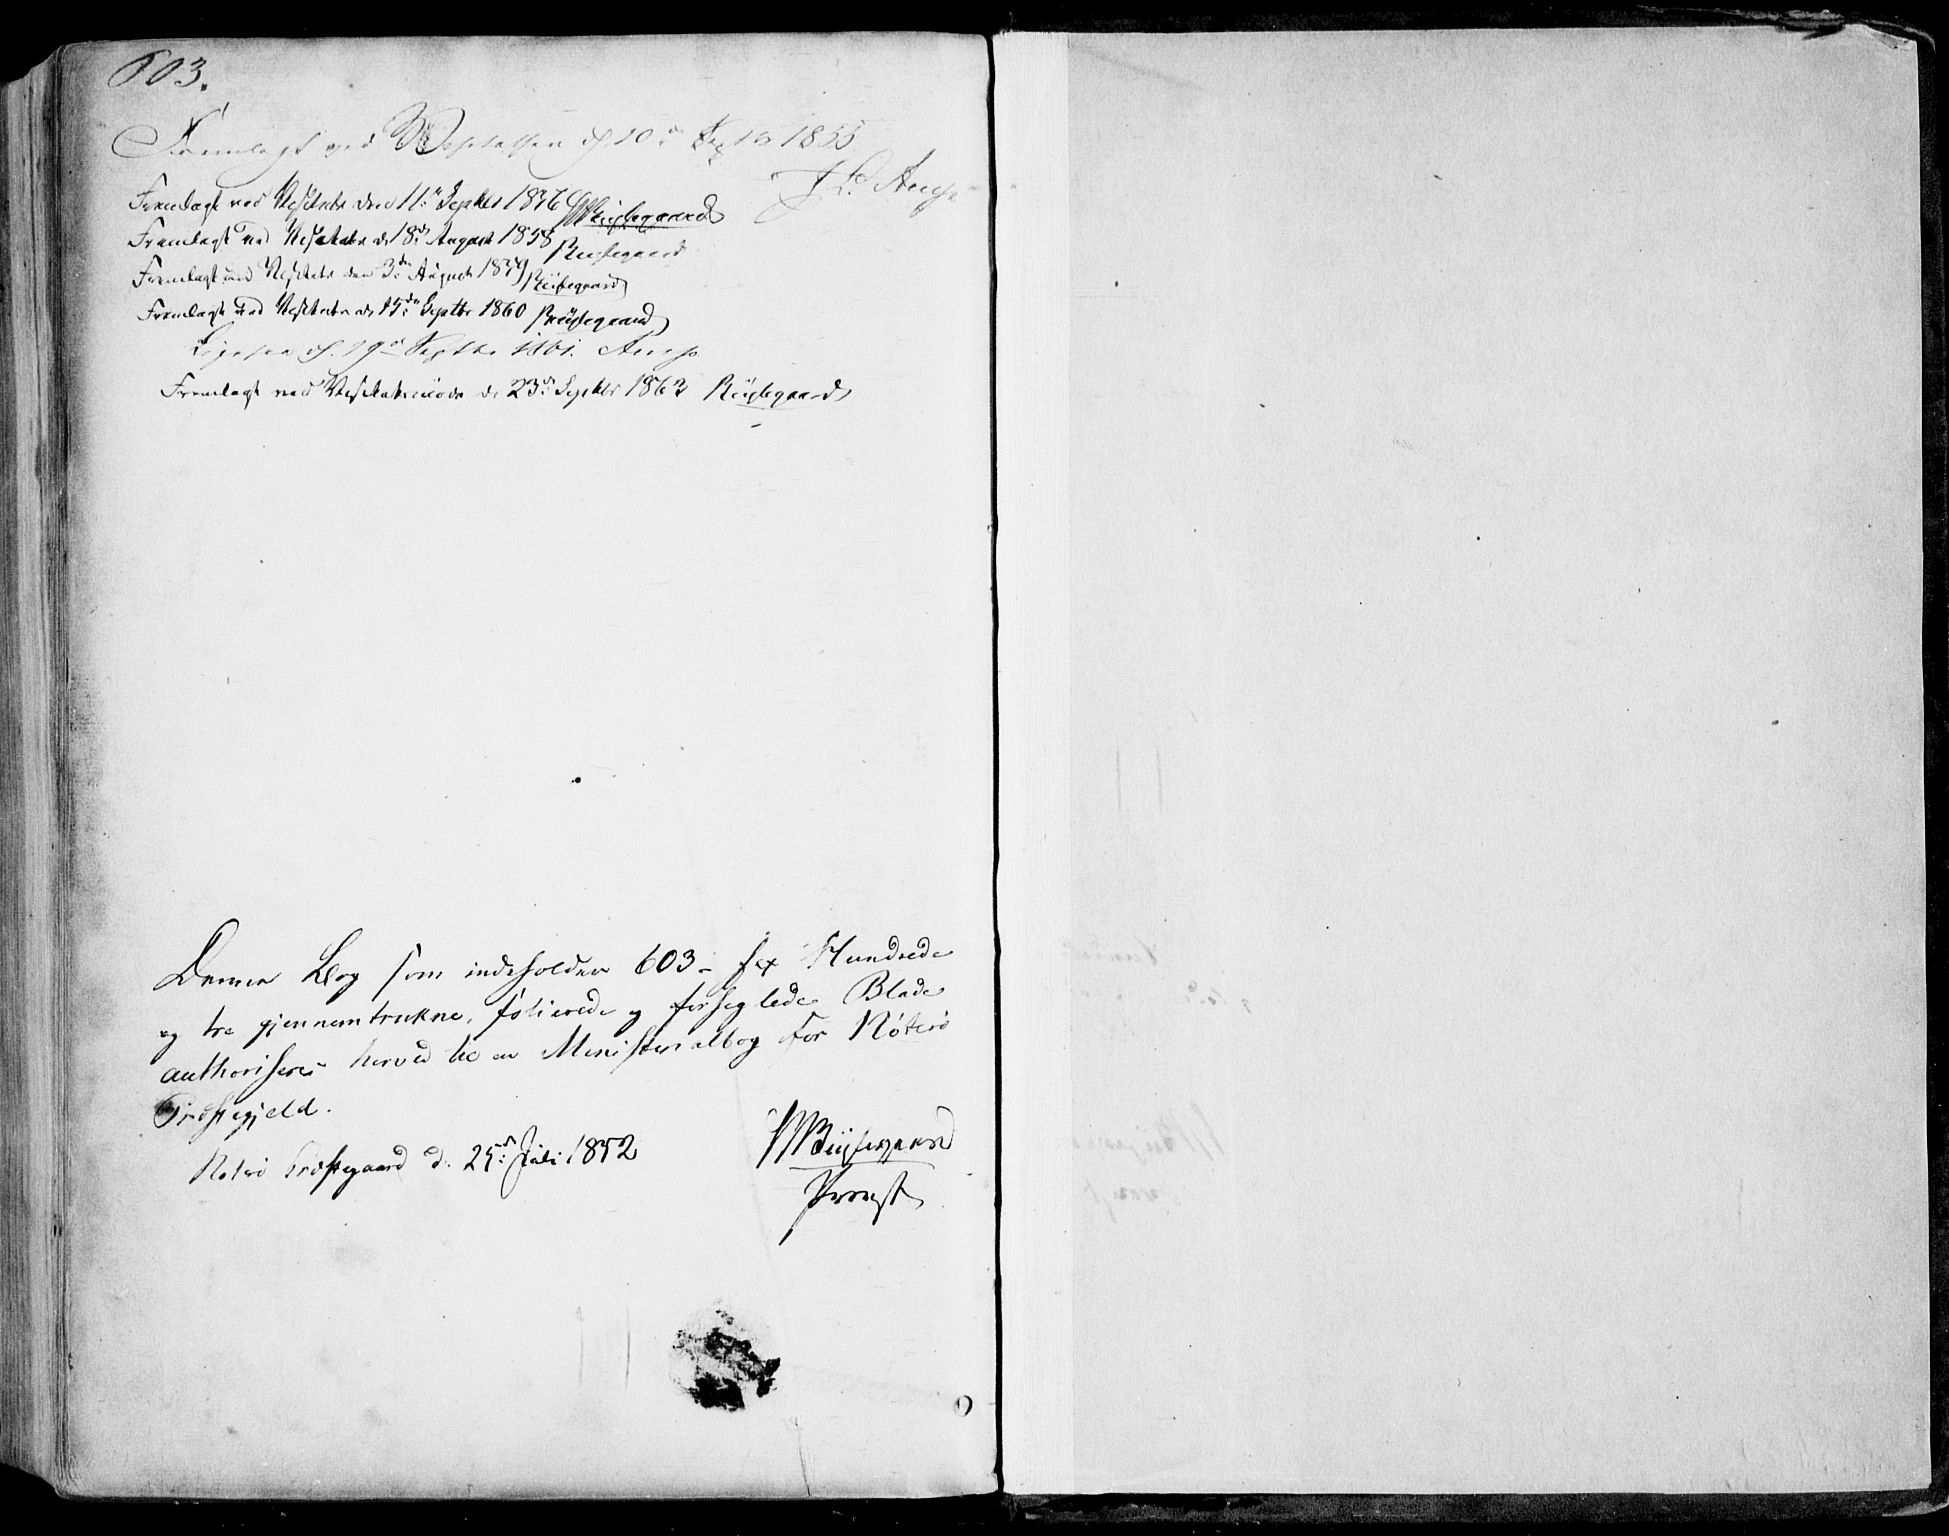 603.
Fremlagt ved Visitatsen d. 10de Sept 1855.
J. L. Arup
Fremlagt ved Visitats den 11te Septbr 1856 Bülsegaard
Fremlagt ved Visitats d. 18de August 1858 Bülsegaard
Fremlagt ved Visitats den 3die August 1859 Bülsegaard
Fremlagt ved Visitats d. 15de Septbr 1860 Bülsegaard
Ligesaa d. 19de Septbr 1861. Arup
Fremlagt ved Visitats d. 23de Septbr 1862 Bülsegaard
Denne Bog som indeholder 603 - sex Hundrede
og tre gjennemtrukne, folierede og forseglede Blade
authoriseres herved til en Ministerialbog for Nøterø
Præstegjeld.
Noterø Præstegaard d. 25de Juli 1852
Bülsegaard
Provst